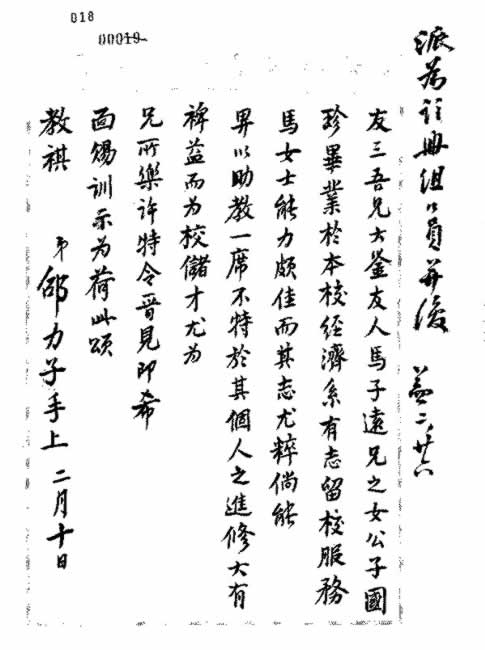 018
00019
派為註册組員并復 益二、廿六
友三吾兄大鉴友人馬子遠兄之女公子國
珍畢業於本校经濟系有志留校服務
馬女士能力頗佳而其志尤粹倘能
畀以助教一席不特於其個人之進修大有
裨益而为校儲才尤为
兄所樂许特令晉見即希
面锡训示为荷此頌
教祺 弟邵力子手上 二月十日